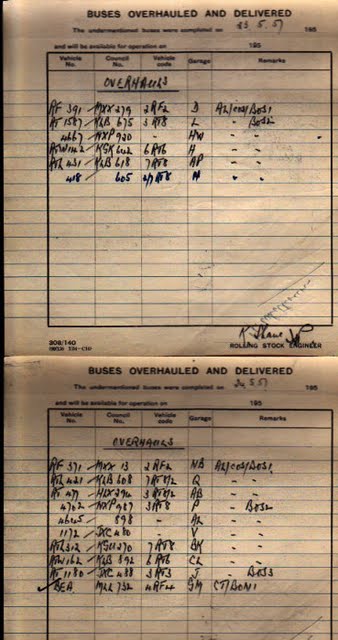 BUSES OVERHAULED AND DELIVERED
The undermentioned buses were completed on 23.5.51 195
and will be available for operation on 195
Vehicle No. Council No. Vehicle code Garage Remarks
OVERHAULS
RF 391 MXX 279 2RF2 D A2/COS/BOS1
RT 1587 KLB 675 3RT8 L " " BOS2
4667 NXP 920 " HW " "
KGK 642 6RT6 H " "
431 KLB 618 7RT8 AP " "
418 605 " "
308/140
ROLLING STOCK ENGINEER
BUSES OVERHAULED AND DELIVERED
The undermentioned buses were completed on 24.5.51 195
and will be available for operation on 195
Vehicle No. Council No. Vehicle code Garage Remarks
OVERHAULS
RF 371 MXX 13 2RF2 NB A2/COS/BOS1
421 KLB 608 Q " "
RT 477 HLX 294 AB " "
4702 NXP 987 3RT8 P " BOS2
598 " AL " "
1172 JXC 480 " V " "
312 270 7RT8 BK " "
162 KLB 392 6RT6 CL " "
RT 1180 JXC 488 3RT3 J " BOS3
BEA MLL 732 4RF4 GM CT/BON1